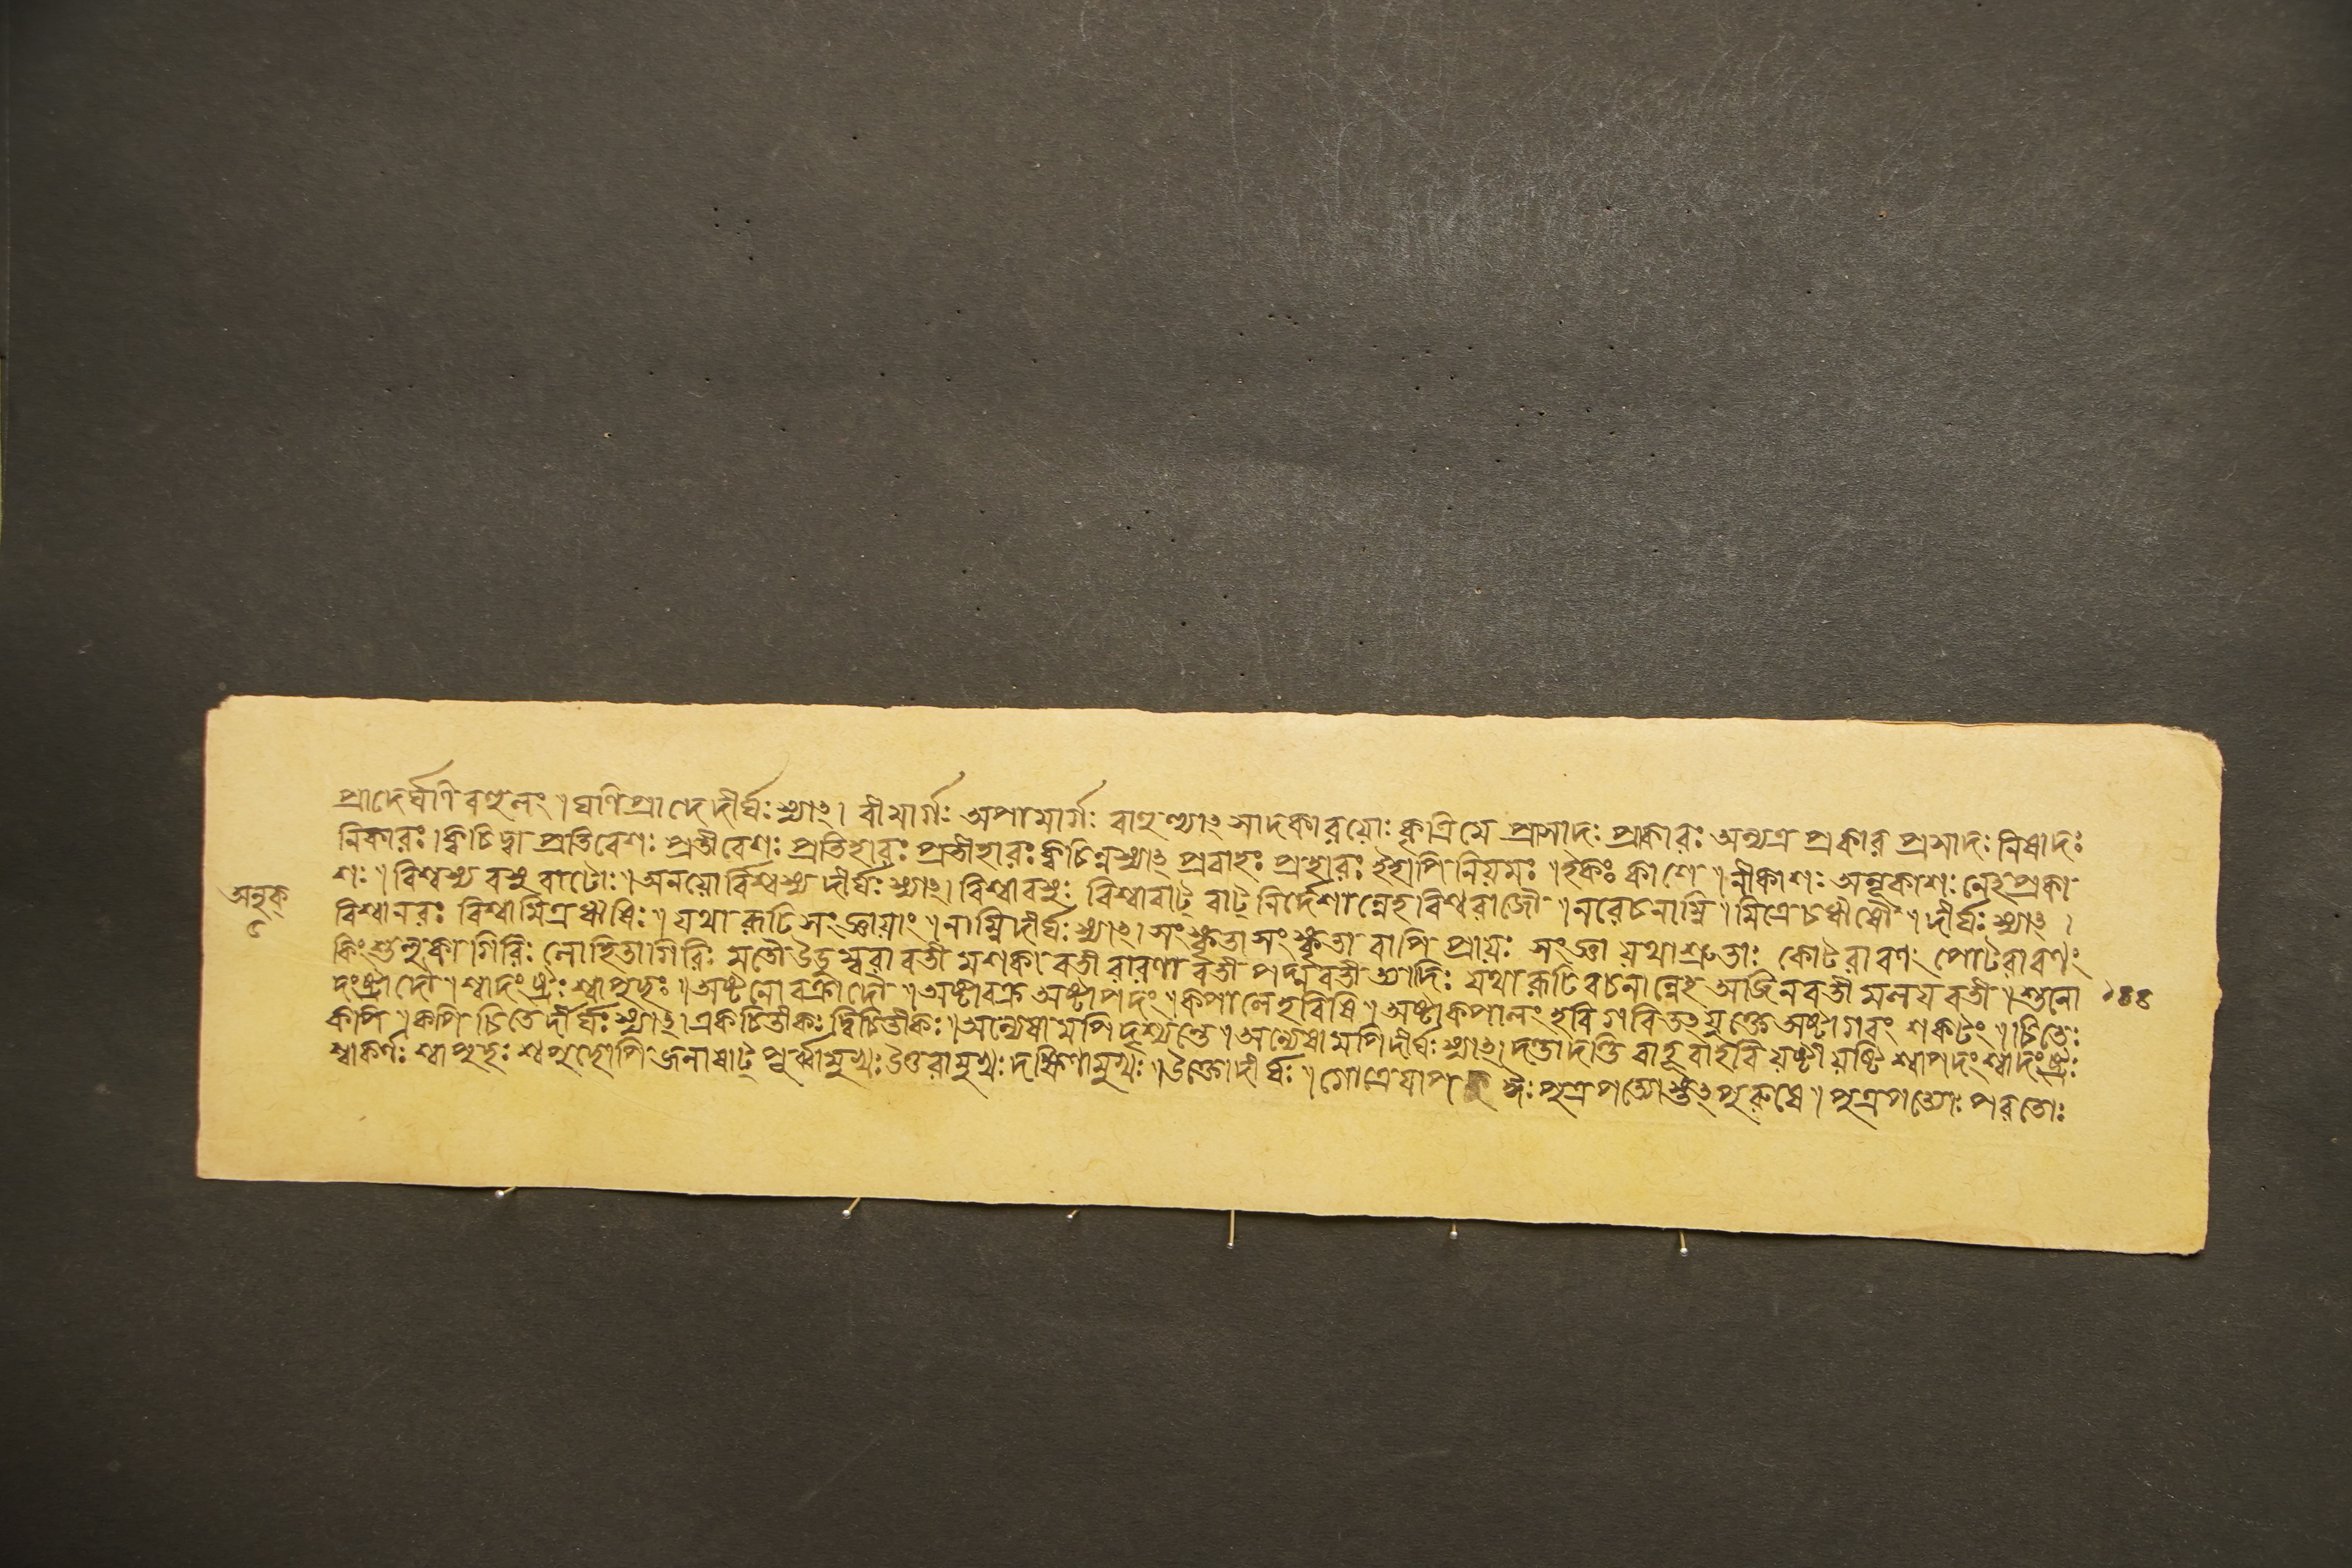 প্রাদের্ঘঞি বহুলং । ঘঞি প্রাদে দীর্ঘঃ স্যাৎ । বীমার্গঃ অপামার্গঃ বাহুল্যাৎ সাদকারয়োঃ কৃত্রিমে প্রাসাদঃ প্রাকারঃ অন্যত্র প্রকার প্রসাদঃ নিষাদঃ
নিকারঃ । ক্বচিদ্বা প্রতিবেশঃ প্রতীবেশঃ প্রতিহারঃ প্রতীহারঃ ক্বচিন্নস্যাৎ প্রবাহঃ প্রহারঃ ইহাপি নিয়মঃ । ইকঃ কাশে । নীকাশঃ অনূকাশঃ নেহ প্রকা
শঃ । বিশ্বস্য বসু বাটোঃ । অনয়ো বিশ্বস্য দীর্ঘঃ স্যাৎ । বিশ্বাবসুঃ বিশ্বাবাট্ বাট্ নির্দেশান্নেহ বিশ্বরাজৌ । নরে চ নাম্নি । মিত্রে চর্ষৌ । দীর্ঘঃ স্যাৎ ।
অনুক্
৫
বিশ্বানরঃ বিশ্বামিত্র ঋষিঃ । যথা রূঢি সংজ্ঞায়াং । নাম্নি দীর্ঘঃ স্যাৎ । সংস্কৃতাসংস্কৃতা বাপি প্রায়ঃ সংজ্ঞা যথাশ্রুতাঃ কোটরাবণং পোটরাবণং
কিংশুলুকা গিরিঃ লোহিতাগিরিঃ মতৌ উডুম্বরাবতী মশকাবতী বারণাবতী পদ্মাবতী ত্যাদিঃ যথা রূঢি বচনান্নেহ অজিনবতী মলয়বতী । শুনো
১৪৪
দংষ্ট্রাদৌ । শ্বাদংষ্ট্রঃ শ্বাপুচ্ছঃ । অষ্টনো বক্রাদৌ । অষ্টাবক্র অষ্টাপদং । কপালে হবিষি । অষ্টাকপালং হবি গবি তু যুক্তে অষ্টাগবং শকটং । চিতেঃ
কপি । কপি চিতে দীর্ঘঃ স্যাৎ । একচিতীকঃ দ্বিচিতীকঃ । অন্যেষামপি দৃশ্যন্তে । অন্যেষামপি দীর্ঘঃ স্যাৎ । দন্তাদন্তি বাহূবাহবি যষ্টীযষ্টি শ্বাপদং শ্বাদংষ্ট্রঃ
শ্বাকর্ণঃ শ্বাপুচ্ছঃ শ্বপুচ্ছোপি জনাষাট্ পূর্ব্বামুখঃ উত্তরামুখঃ দক্ষিণামুখঃ । উক্তো দীর্ঘঃ । পুত্রপত্যোস্তৎপুরুষে । পুত্রপত্যোঃ পরতোঃ